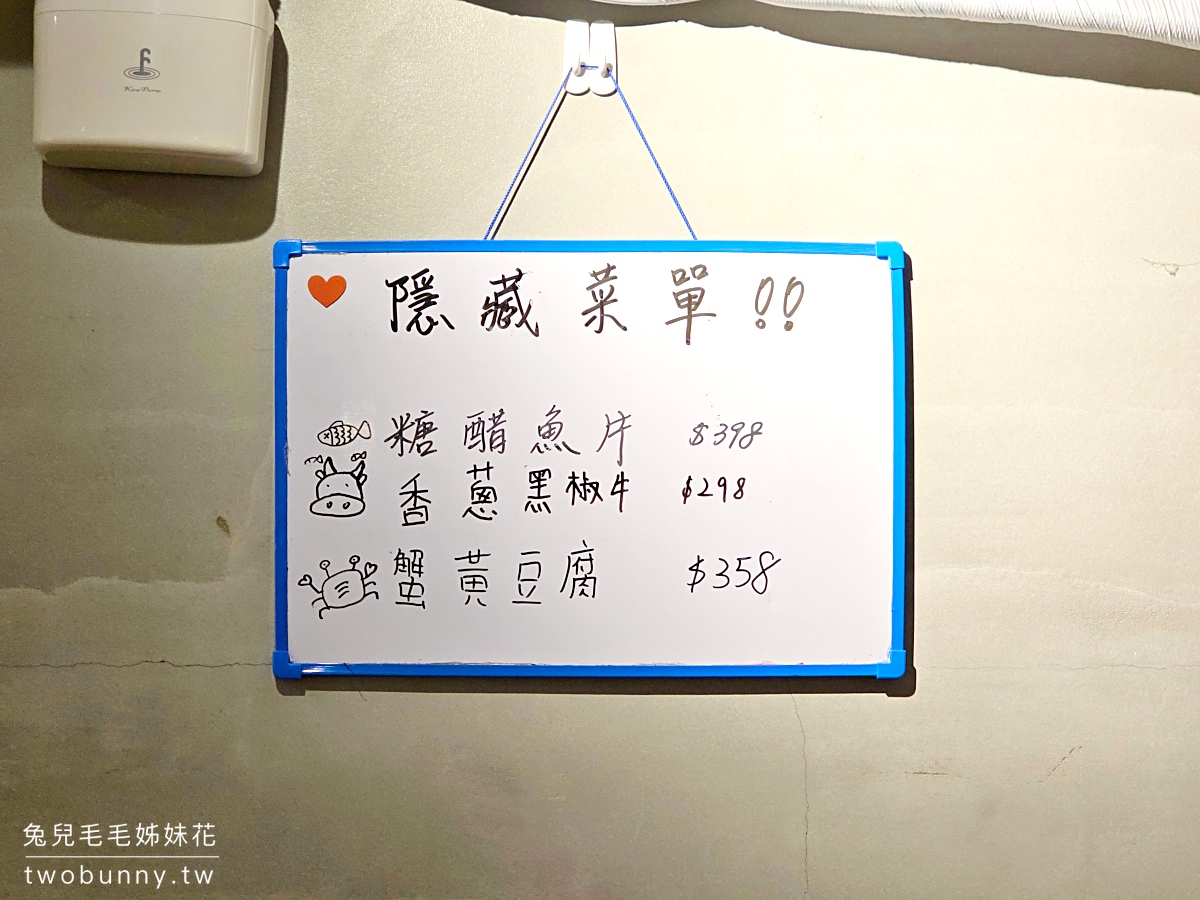 隱藏菜單!!
糖醋魚片 $398
香蔥黑椒牛 $298
蟹黃豆腐 $358
兔兒毛毛姊妹花
twobunny.tw